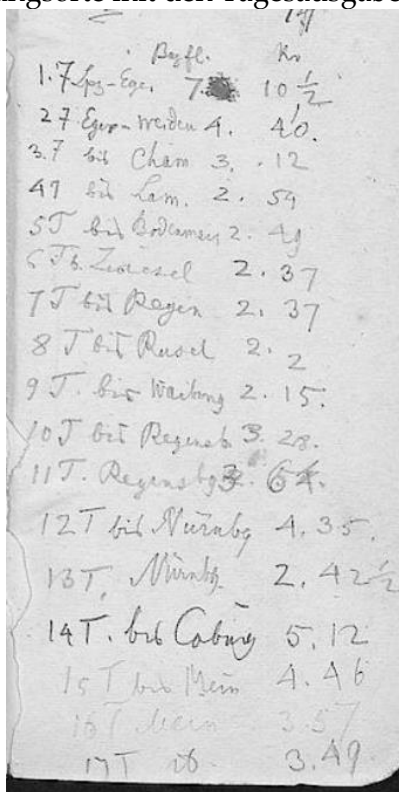 ungsorte mit den Tagesausgabe
Kr
1. T Lpz-Eger 7. 10 1/2
2 T Eger-Weiden 4. 40.
3. T bis Cham 3. 12
4 T bis Lam. 2. 54
5 T bis Bodenmais 2. 49
6 T b. Zwiesel 2. 37
7 T bis Regen 2. 37
8 T bis Rusel 2. 2
9 T. bis 2. 15.
10 T bis Regensb. 3. 28.
11 T. Regensbg 3. 64.
12 T bis Nürnbg 4. 35.
13 T. Nürnbg. 2. 42 1/2
14 T. bis Coburg 5. 12
15 T bis 4. 46
16 T 3.57
17 T 3.49